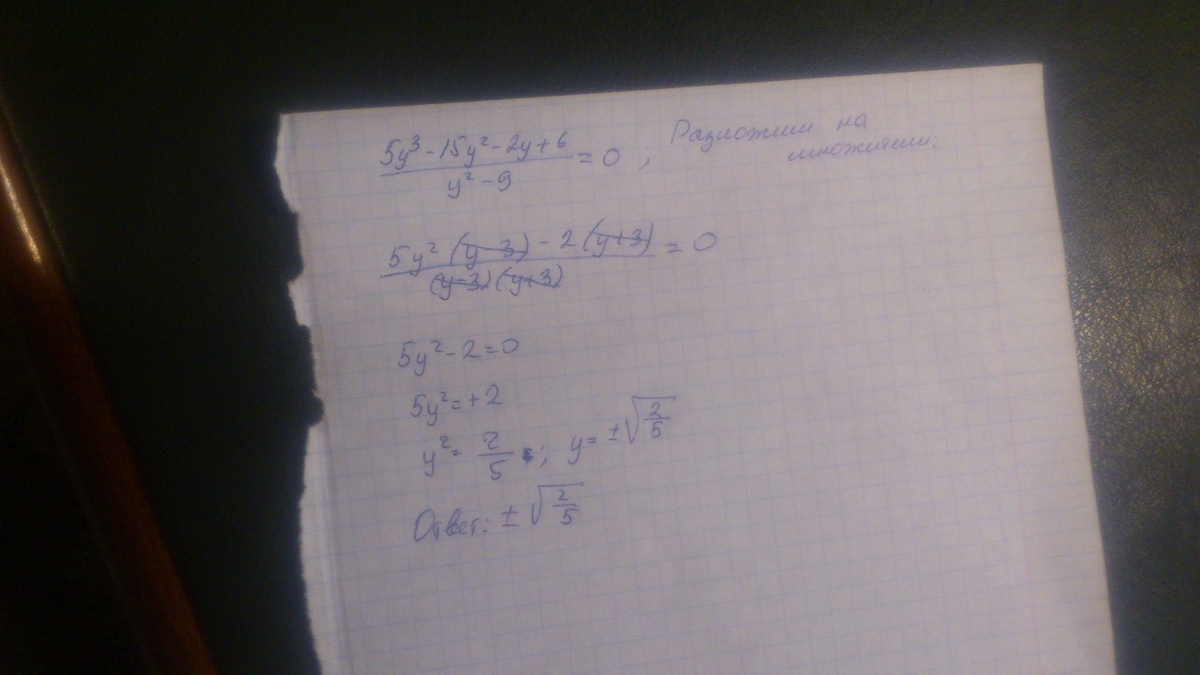 (5y³ - 15y² - 2y + 6)/(y² - 9) = 0 , Разложим на
множители.
(5y² (y-3) - 2 (y+3))/((y-3)(y+3)) = 0
5y² - 2 = 0
5y² = + 2
y² = 2/5 ; y = ± √(2/5)
Ответ: ± √(2/5)